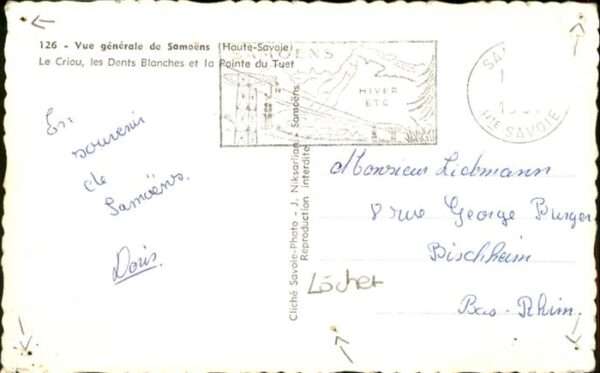 126 - Vue générale de Samoëns (Haute-Savoie)
Le Criou, les Dents Blanches et la Pointe du Tuet
SAMOENS
HIVER
ETE
Hte SAVOIE
En
souvenir
de
Samoëns.
Doris.
Cliché Savoie-Photo - J. Niksarlian - Samoëns
Reproduction interdite
Monsieur Liebmann
8 rue George Burger
Bischheim
Löcher
Bas-Rhin.